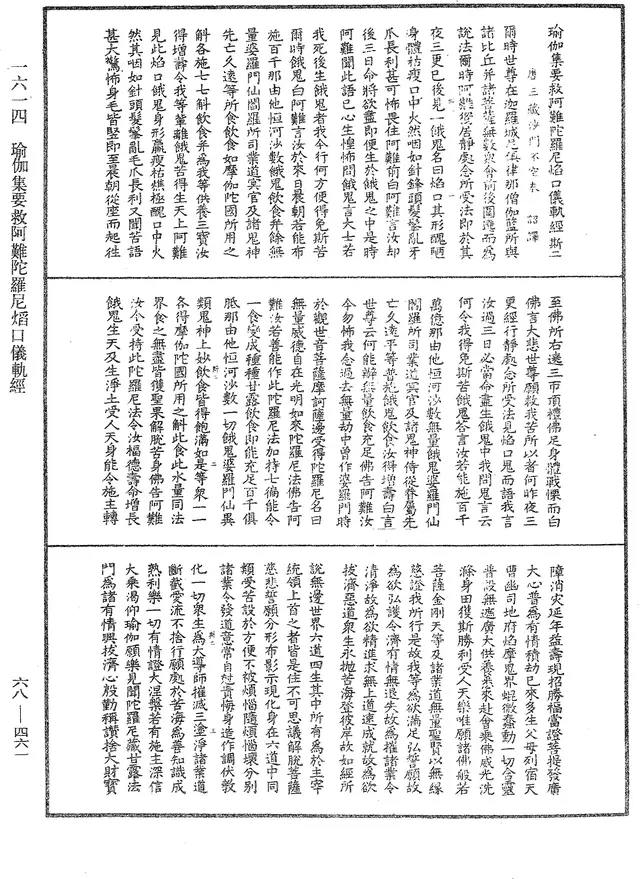 瑜伽集要救阿難陀羅尼焰口儀軌經斯二
唐三藏沙門不空奉 詔譯
爾時世尊在迦羅城尼俱律那僧伽藍所與
諸比丘并諸菩薩無數衆會前後圍遶而為
說法爾時阿難獨居靜處念所受法即於其
夜三更已後見一餓鬼名曰焰口其形醜陋
身體枯瘦口中火然咽如針鋒頭髮髼亂牙
爪長利甚可怖畏住阿難前白阿難言汝却
後三日命將欲盡即便生於餓鬼之中是時
阿難聞此語已心生惶怖問餓鬼言大士若
我死後生餓鬼者我今行何方便得免斯苦
爾時餓鬼白阿難言汝於來日晨朝若能布
施百千那由他恒河沙數餓鬼飲食并餘無
量婆羅門仙閻羅所司業道冥官及諸鬼神
先亡久遠等所食飲食如摩伽陀國所用之
斛各施七七斛飲食并為我等供養三寶汝
得增壽令我等輩離餓鬼苦得生天上阿難
見此焰口餓鬼身形羸瘦枯燋極醜口中火
然其咽如針頭髮髼亂毛爪長利又聞苦語
甚大驚怖身毛皆豎即至晨朝從座而起往
至佛所右遶三帀頂禮佛足身體戰慄而白
佛言大悲世尊願救我苦所以者何昨夜三
更經行靜處念所受法見焰口鬼而語我言
汝過三日必當命盡生餓鬼中我問鬼言云
何令我得免斯苦餓鬼答言汝若能施百千
萬億那由他恒河沙數無量餓鬼婆羅門仙
閻羅所司業道冥官及諸鬼神侍從眷屬先
亡久遠平等普施餓鬼飲食汝得增壽白言
世尊云何能辦無量飲食充足佛告阿難汝
今勿怖我念過去無量劫中曾作婆羅門時
於觀世音菩薩摩訶薩邊受得陀羅尼名曰
無量威德自在光明如來陀羅尼法佛告阿
難汝若善能作此陀羅尼法加持七徧能令
一食變成種種甘露飲食即能充足百千俱
胝那由他恒河沙數一切餓鬼婆羅門仙異
類鬼神上妙飲食皆得飽滿如是等衆一一
各得摩伽陀國所用之斛此食此水量同法
界食之無盡皆獲聖果解脫苦身佛告阿難
汝今受持此陀羅尼法令汝福德壽命增長
餓鬼生天及生淨土受人天身能令施主轉
障消災延年益壽現招勝福當證菩提發廣
大心普為有情積劫已來多生父母列宿天
曹幽司地府焰摩鬼界蜎微蠢動一切含靈
普設無遮廣大供養悉來赴會乘佛威光洗
滌身田獲斯勝利受人天樂唯願諸佛般若
菩薩金剛天等及諸業道無量聖賢以無緣
慈證我所行是故我等為欲滿足弘誓願故
為欲弘護令濟有情無退失故為摧諸業令
清淨故為欲精進求無上道速成就故為欲
拔濟惡道衆生永拋苦海登彼岸故如經所
說無邊世界六道四生其中所有為於主宰
統領上首之者皆是住不可思議解脫菩薩
慈悲誓願分形布影示現化身在六道中同
類受苦設於方便不被煩惱隨煩惱壞分別
諸業令發道意常自剋責悔身造作調伏教
化一切衆生為大導師摧滅三塗淨諸業道
斷截愛流不捨行願處於苦海為善知識成
熟利樂一切有情證大涅槃若有施主深信
大乘渴仰瑜伽願樂見聞陀羅尼藏甘露法
門為諸有情興拔濟心殷勤稱讚捨大財寶
一六一四 瑜伽集要救阿難陀羅尼焰口儀軌經
六八—四六一